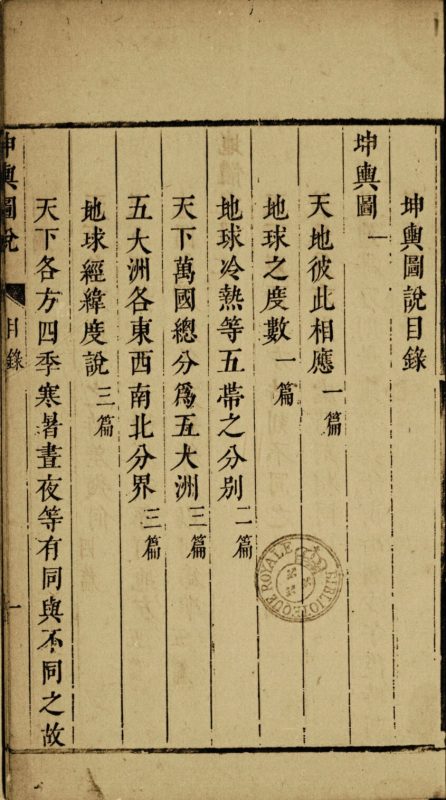 坤輿圖說目錄
坤輿圖一
天地彼此相應 一篇
地球之度數 一篇
地球冷熱等五帶之分别 二篇
天下萬國總分爲五大洲 三篇
五大洲各東西南北分界 三篇
地球經緯度說 三篇
天下各方四季寒暑晝夜等有同與不同之故
坤輿圖說 目錄 一
BIBLIOTEQUE ROYALE